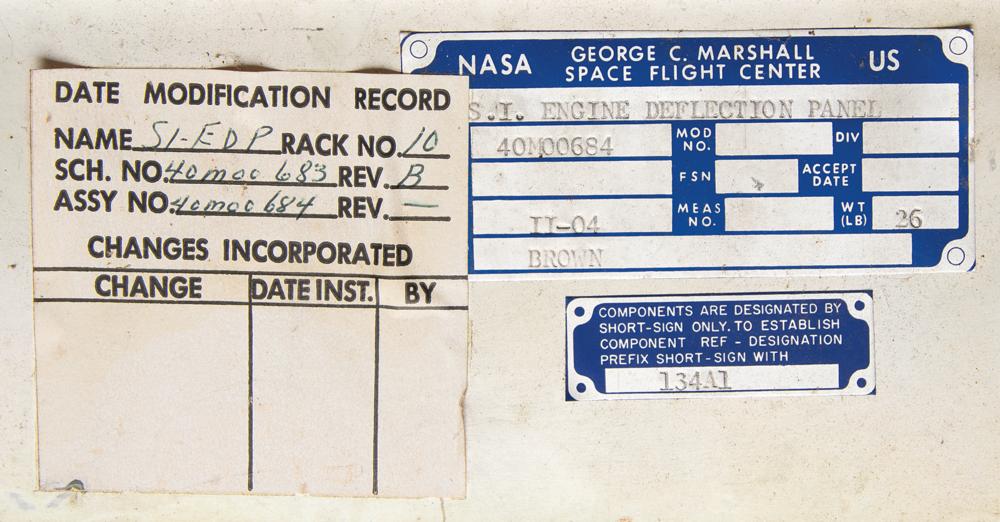 DATE MODIFICATION RECORD
NAME SI-EDP RACK NO. 10
SCH. NO. 40m00 683 REV. B
ASSY NO. 40m00 684 REV. —
CHANGES INCORPORATED
CHANGE DATE INST. BY
NASA GEORGE C. MARSHALL SPACE FLIGHT CENTER US
S.I. ENGINE DEFLECTION PANEL
40M00684 MOD NO. DIV
FSN ACCEPT DATE
II-04 MEAS NO. WT (LB) 26
BROWN
COMPONENTS ARE DESIGNATED BY
SHORT-SIGN ONLY. TO ESTABLISH
COMPONENT REF - DESIGNATION
PREFIX SHORT-SIGN WITH
134A1